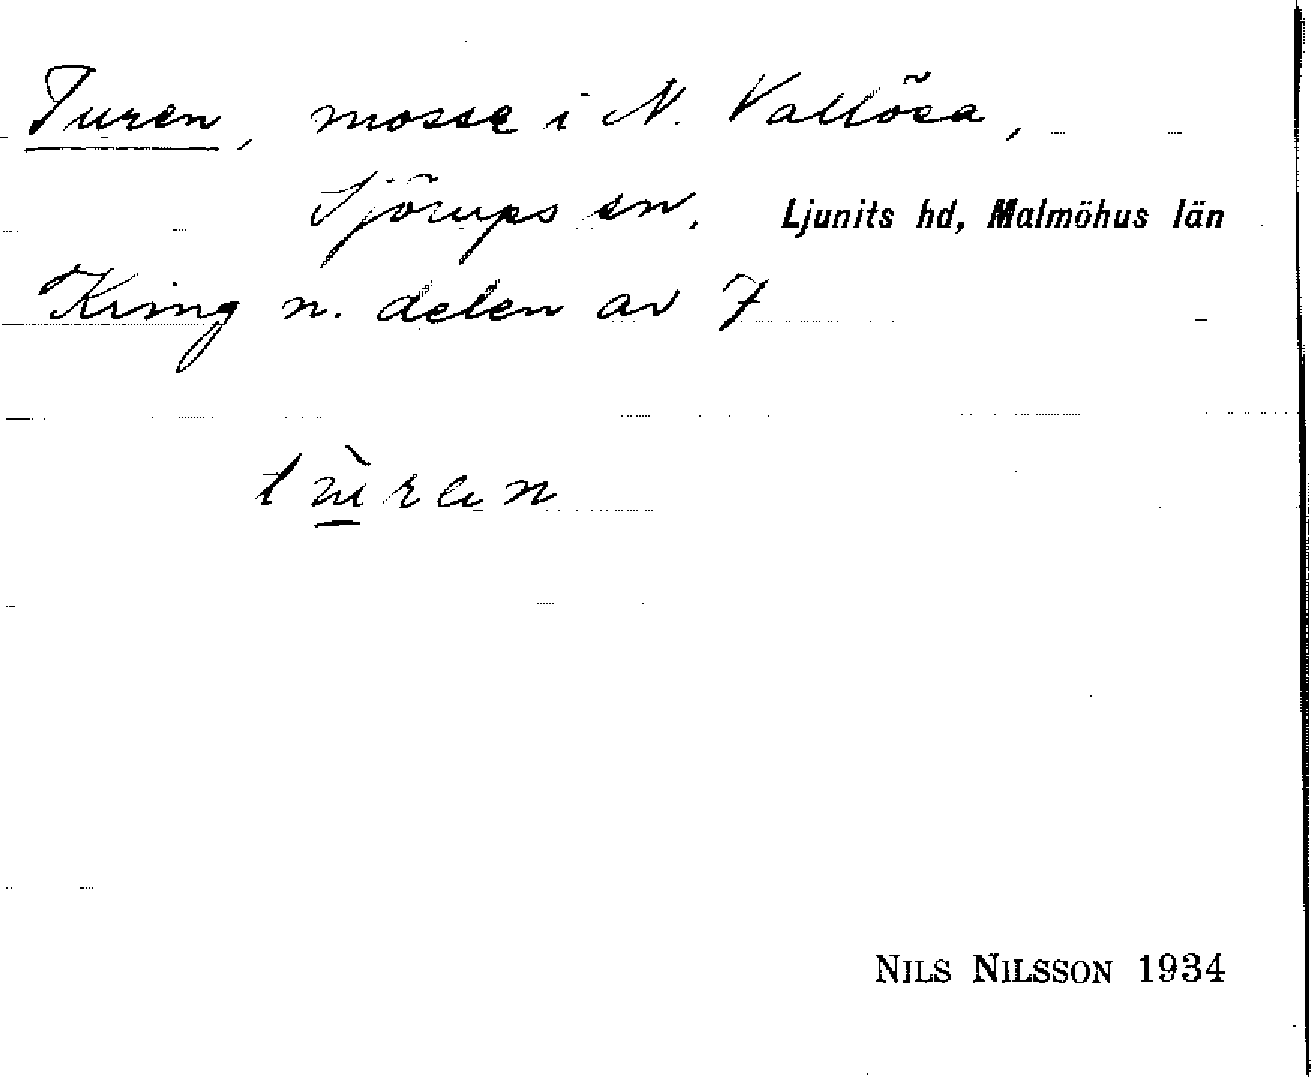 Turen, mosse i N. Vallösa,
Sjörups sn. Ljunits hd, Malmöhus län
Kring n. delen av 7
NILS NILSSON 1934